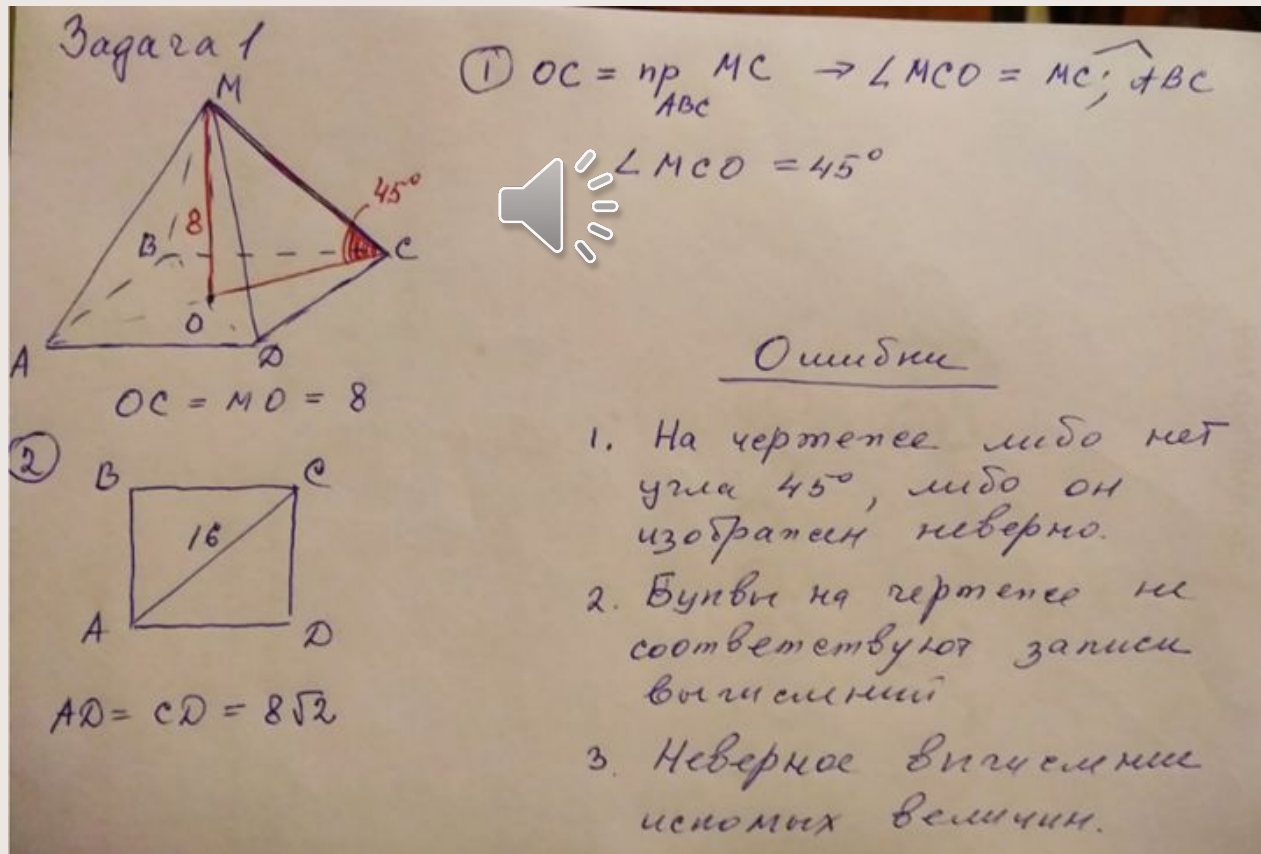 Задача 1
M
45°
8
B
C
O
A
D
OC = MO = 8
① OC = пр MC → ∠MCO = MC; ABC
ABC
∠MCO = 45°
②
B
C
16
A
D
AD = CD = 8√2
Ошибки
1. На чертеже либо нет
угла 45°, либо он
изображен неверно.
2. Буквы на чертеже не
соответствуют записи
вычислений
3. Неверное вычисление
искомых величин.